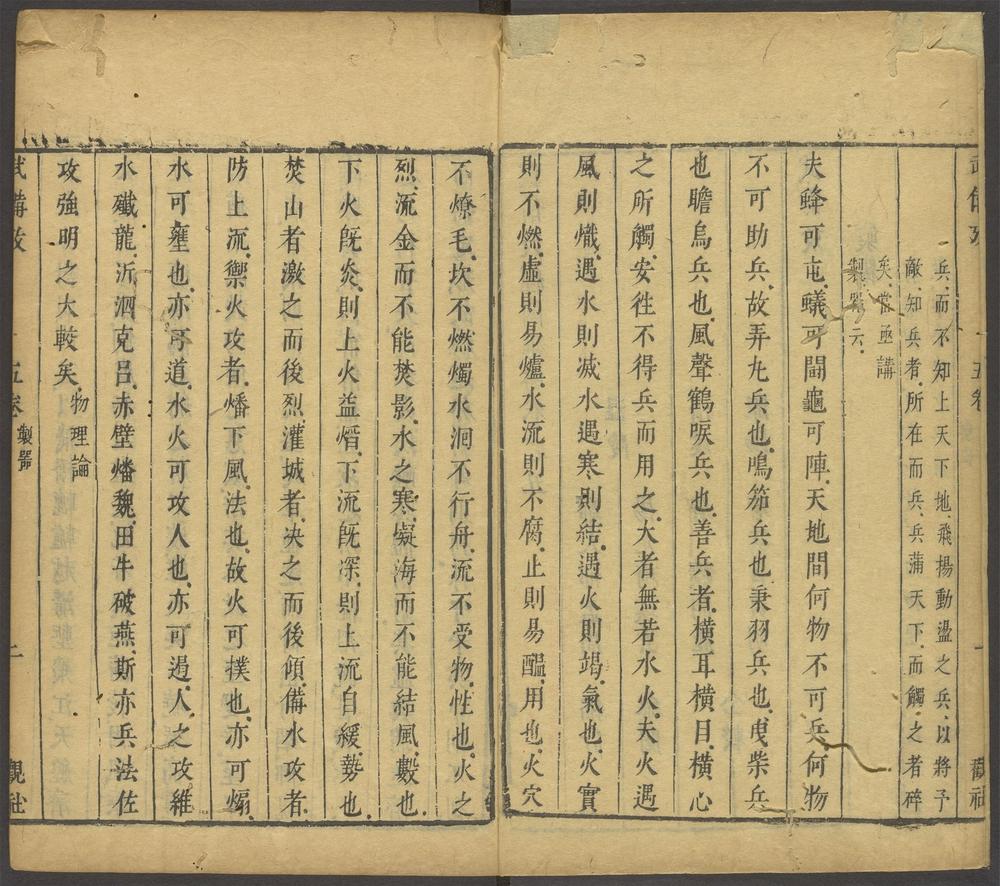 五卷
觀社
兵而不知上天下地飛揚動盪之兵以將予
敵知兵者所在而兵兵蒲天下而觸之者碎
矣當亟講
製器云
夫蜂可屯蟻可鬪龜可陣天地間何物不可兵何物
不可助兵故弄丸兵也鳴笳兵也秉羽兵也曳柴兵
也瞻烏兵也風聲鶴唳兵也善兵者橫耳橫目橫心
之所觸安徃不得兵而用之大者無若水火夫火遇
風則熾遇水則减水遇寒則結遇火則竭氣也火實
則不燃虛則易爐水流則不腐止則易醖用也火穴
不燎毛坎不燃燭水洄不行舟流不受物性也火之
烈流金而不能焚影水之寒凝海而不能結風數也
下火旣炎則上火益熸下流旣深則上流自緩勢也
焚山者激之而後烈灌城者決之而後傾備水攻者
防上流禦火攻者燔下風法也故火可撲也亦可煽
水可壅也亦可道水火可攻人也亦可遏人之攻維
水殲龍沂泗克呂赤壁燔魏田牛破燕斯亦兵法佐
攻強明之大較矣 物理論
武備 五卷 製器 二 觀社